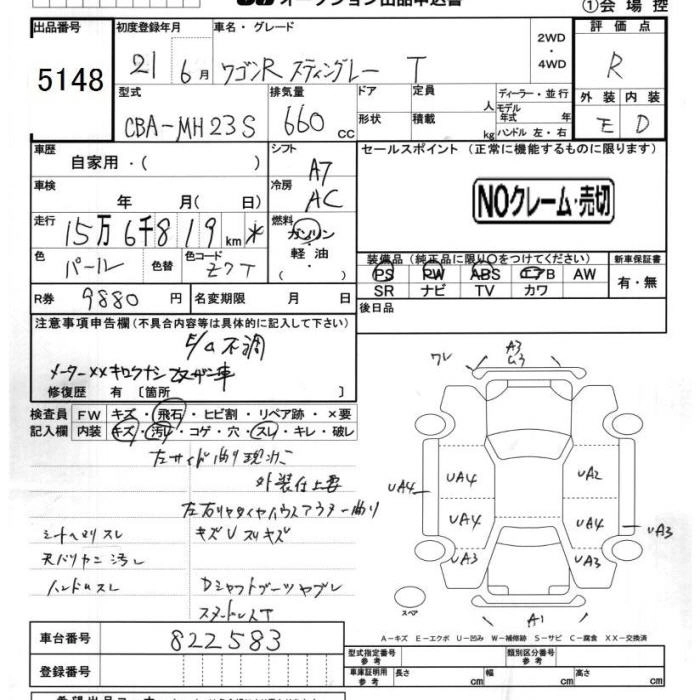 オークション出品申込書
①会場控
出品番号 初度登録年月 車名・グレード 2WD・4WD 評価点
5148 21 6月 ワゴンR スティングレー T R
型式 排気量 ドア 定員 人 ディーラー・並行 外装 内装
CBA-MH23S 660cc 形状 積載 kg モデル年式 年 ハンドル 左・右 E D
車歴 シフト セールスポイント (正常に機能するものに限ります)
自家用・( ) A7
車検 冷房 NOクレーム・売切
年 月( 日) AC
走行 燃料
15万6千819km * ガソリン・軽油・( )
色 色替 色コード 装備品(純正品に限り○をつけてください) 新車保証書
パール Z7T PS PW ABS エアB AW 有・無
SR ナビ TV カワ
R券 9880円 名変期限 月 日 後日品
注意事項申告欄(不具合内容等は具体的に記入して下さい)
E/G不調
メーター××キロクナシ 改ザン車
修復歴 有〔箇所
ワレ A3 U3
検査員 FW キズ・飛石・ヒビ割・リペア跡・×要
記入欄 内装 キズ・汚レ・コゲ・穴・スレ・キレ・破レ
左サイド曲り現状
外装仕上要
左右リヤタイヤハウスアウター曲り
シートヘリスレ キズUスリキズ
天バリカニ汚レ
ハンドルスレ Dシャフトブーツヤブレ
スタッドレスT
UA4 UA4 UA2 UA4 UA4 UA3
UA3 UA3
スペア A1
A-キズ E-エクボ U-凹み W-補修跡 S-サビ C-腐食 XX-交換済
車台番号 822583 型式指定番号 参考 類別区分番号 参考
登録番号 車庫証明用 参考 長さ cm 幅 cm 高さ cm
希望出品コーナー